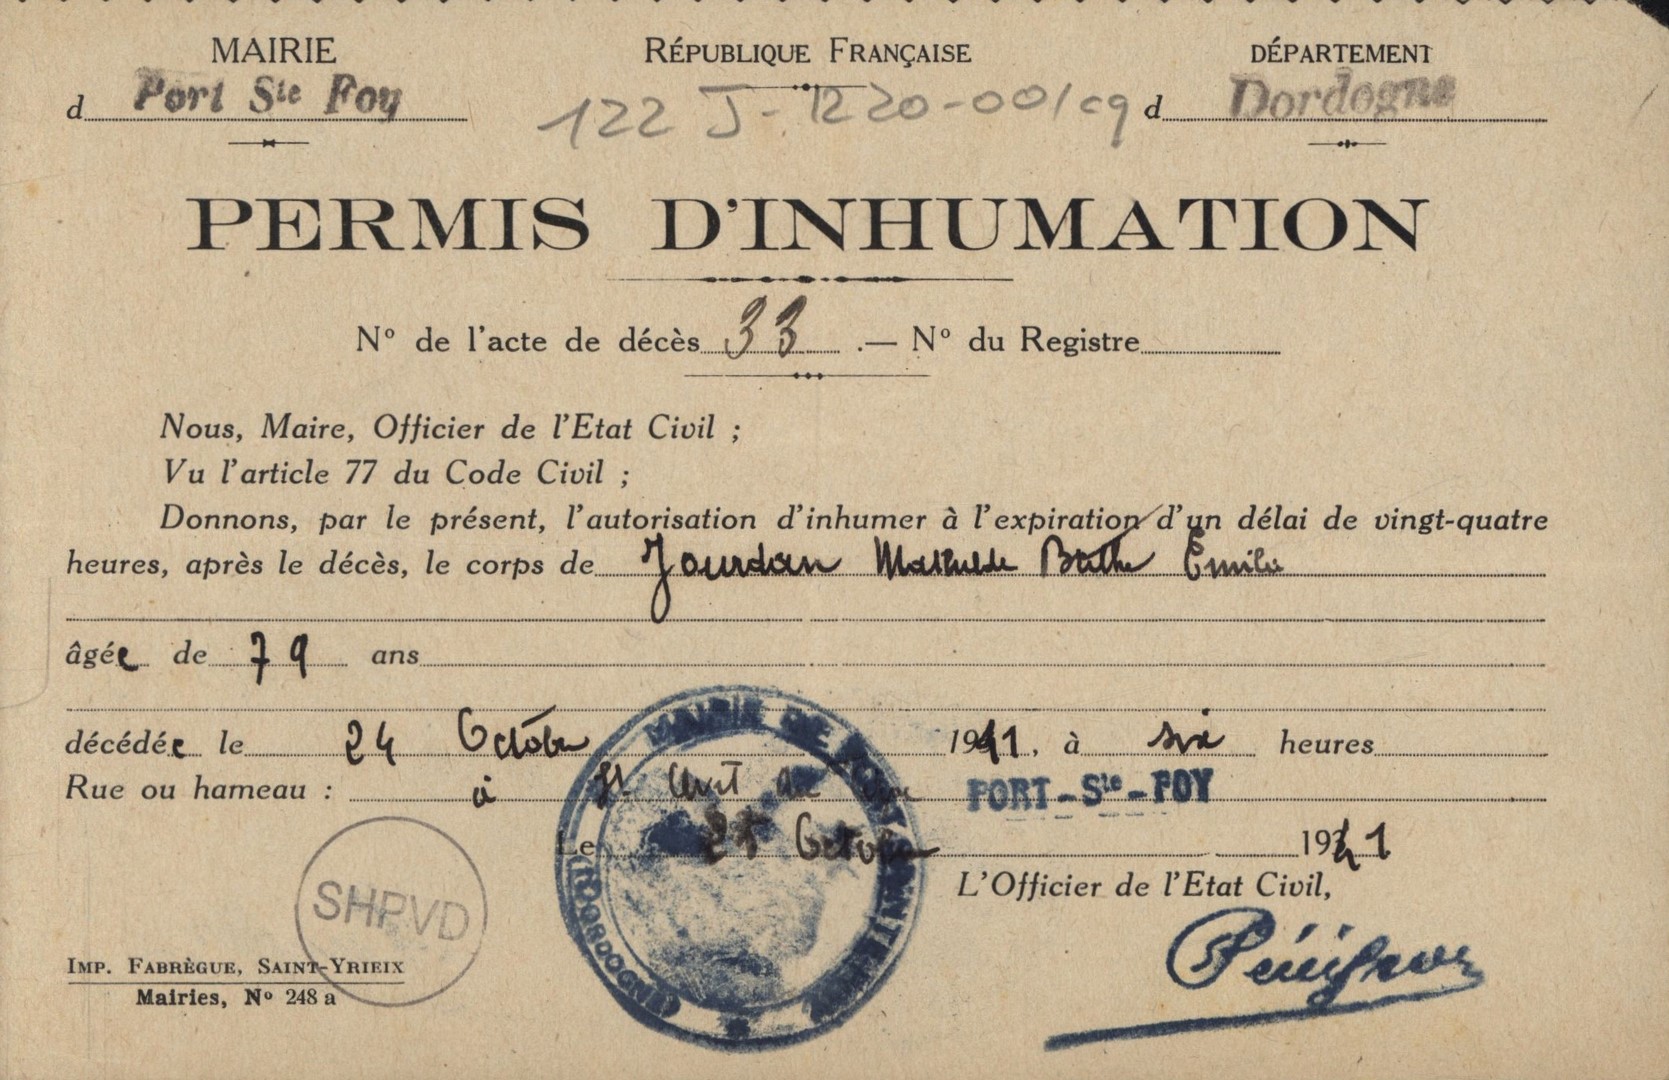 MAIRIE
RÉPUBLIQUE FRANÇAISE
DÉPARTEMENT
d Port Ste Foy
122 J - 1220-001/cg
d Dordogne
PERMIS D'INHUMATION
No de l'acte de décès 33 .— No du Registre
Nous, Maire, Officier de l'Etat Civil ;
Vu l'article 77 du Code Civil ;
Donnons, par le présent, l'autorisation d'inhumer à l'expiration d'un délai de vingt-quatre
heures, après le décès, le corps de Jourdan Mathilde Berthe
âgée de 79 ans
décédée le 24 Octobre 1941, à six heures
Rue ou hameau : à St Avit de PORT-Ste-FOY
Le 25 Octobre 1941
L'Officier de l'Etat Civil,
MAIRIE DE PORT SAINTE FOY
(DORDOGNE)
SHPVD
IMP. FABRÈGUE, SAINT-YRIEIX
Mairies, No 248 a